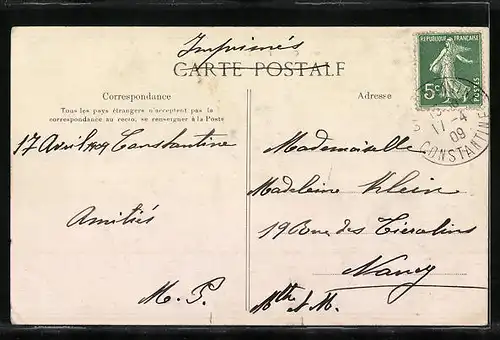 Imprimés
CARTE POSTALE
RÉPUBLIQUE FRANÇAISE
5c
POSTES
17-4
09
CONSTANTINE
Correspondance
Tous les pays étrangers n'acceptent pas la
correspondance au recto, se renseigner à la Poste
17 Avril 1909 Constantine
Amitiés
M. P.
Adresse
Mademoiselle
Madeleine Klein
19 Rue des Tiercelins
Nancy
Mthe et M.